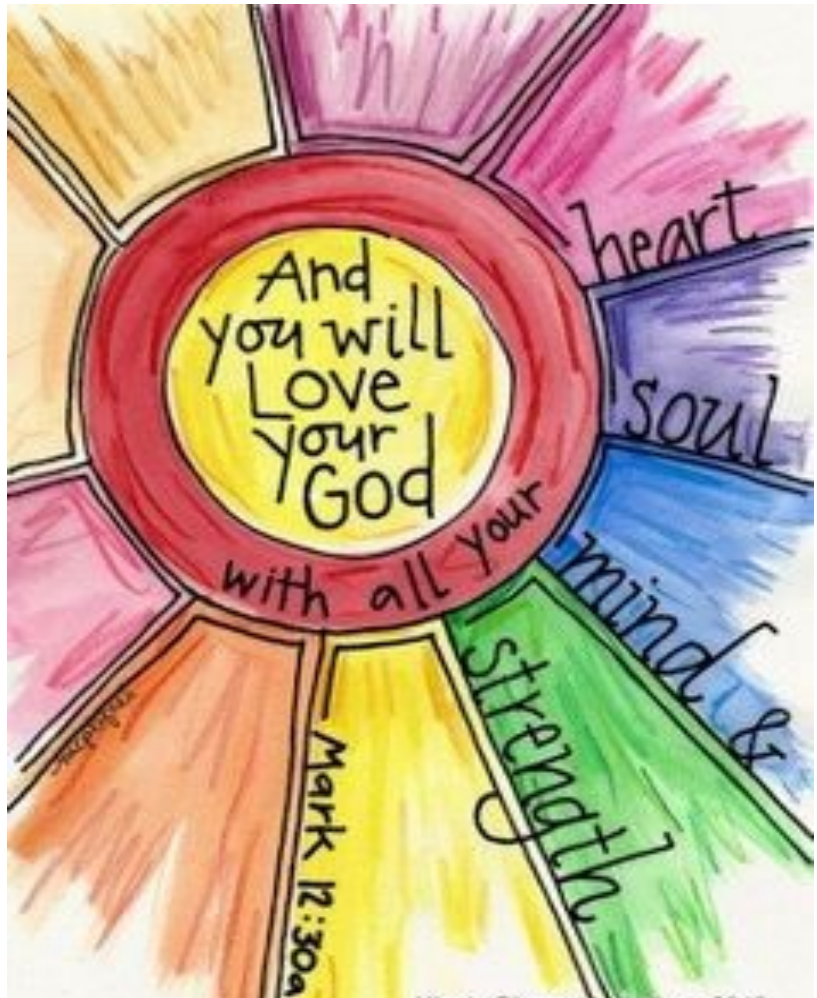 And
you will
Love
your
God
with all your
heart
soul
mind &
strength
Mark 12:30a